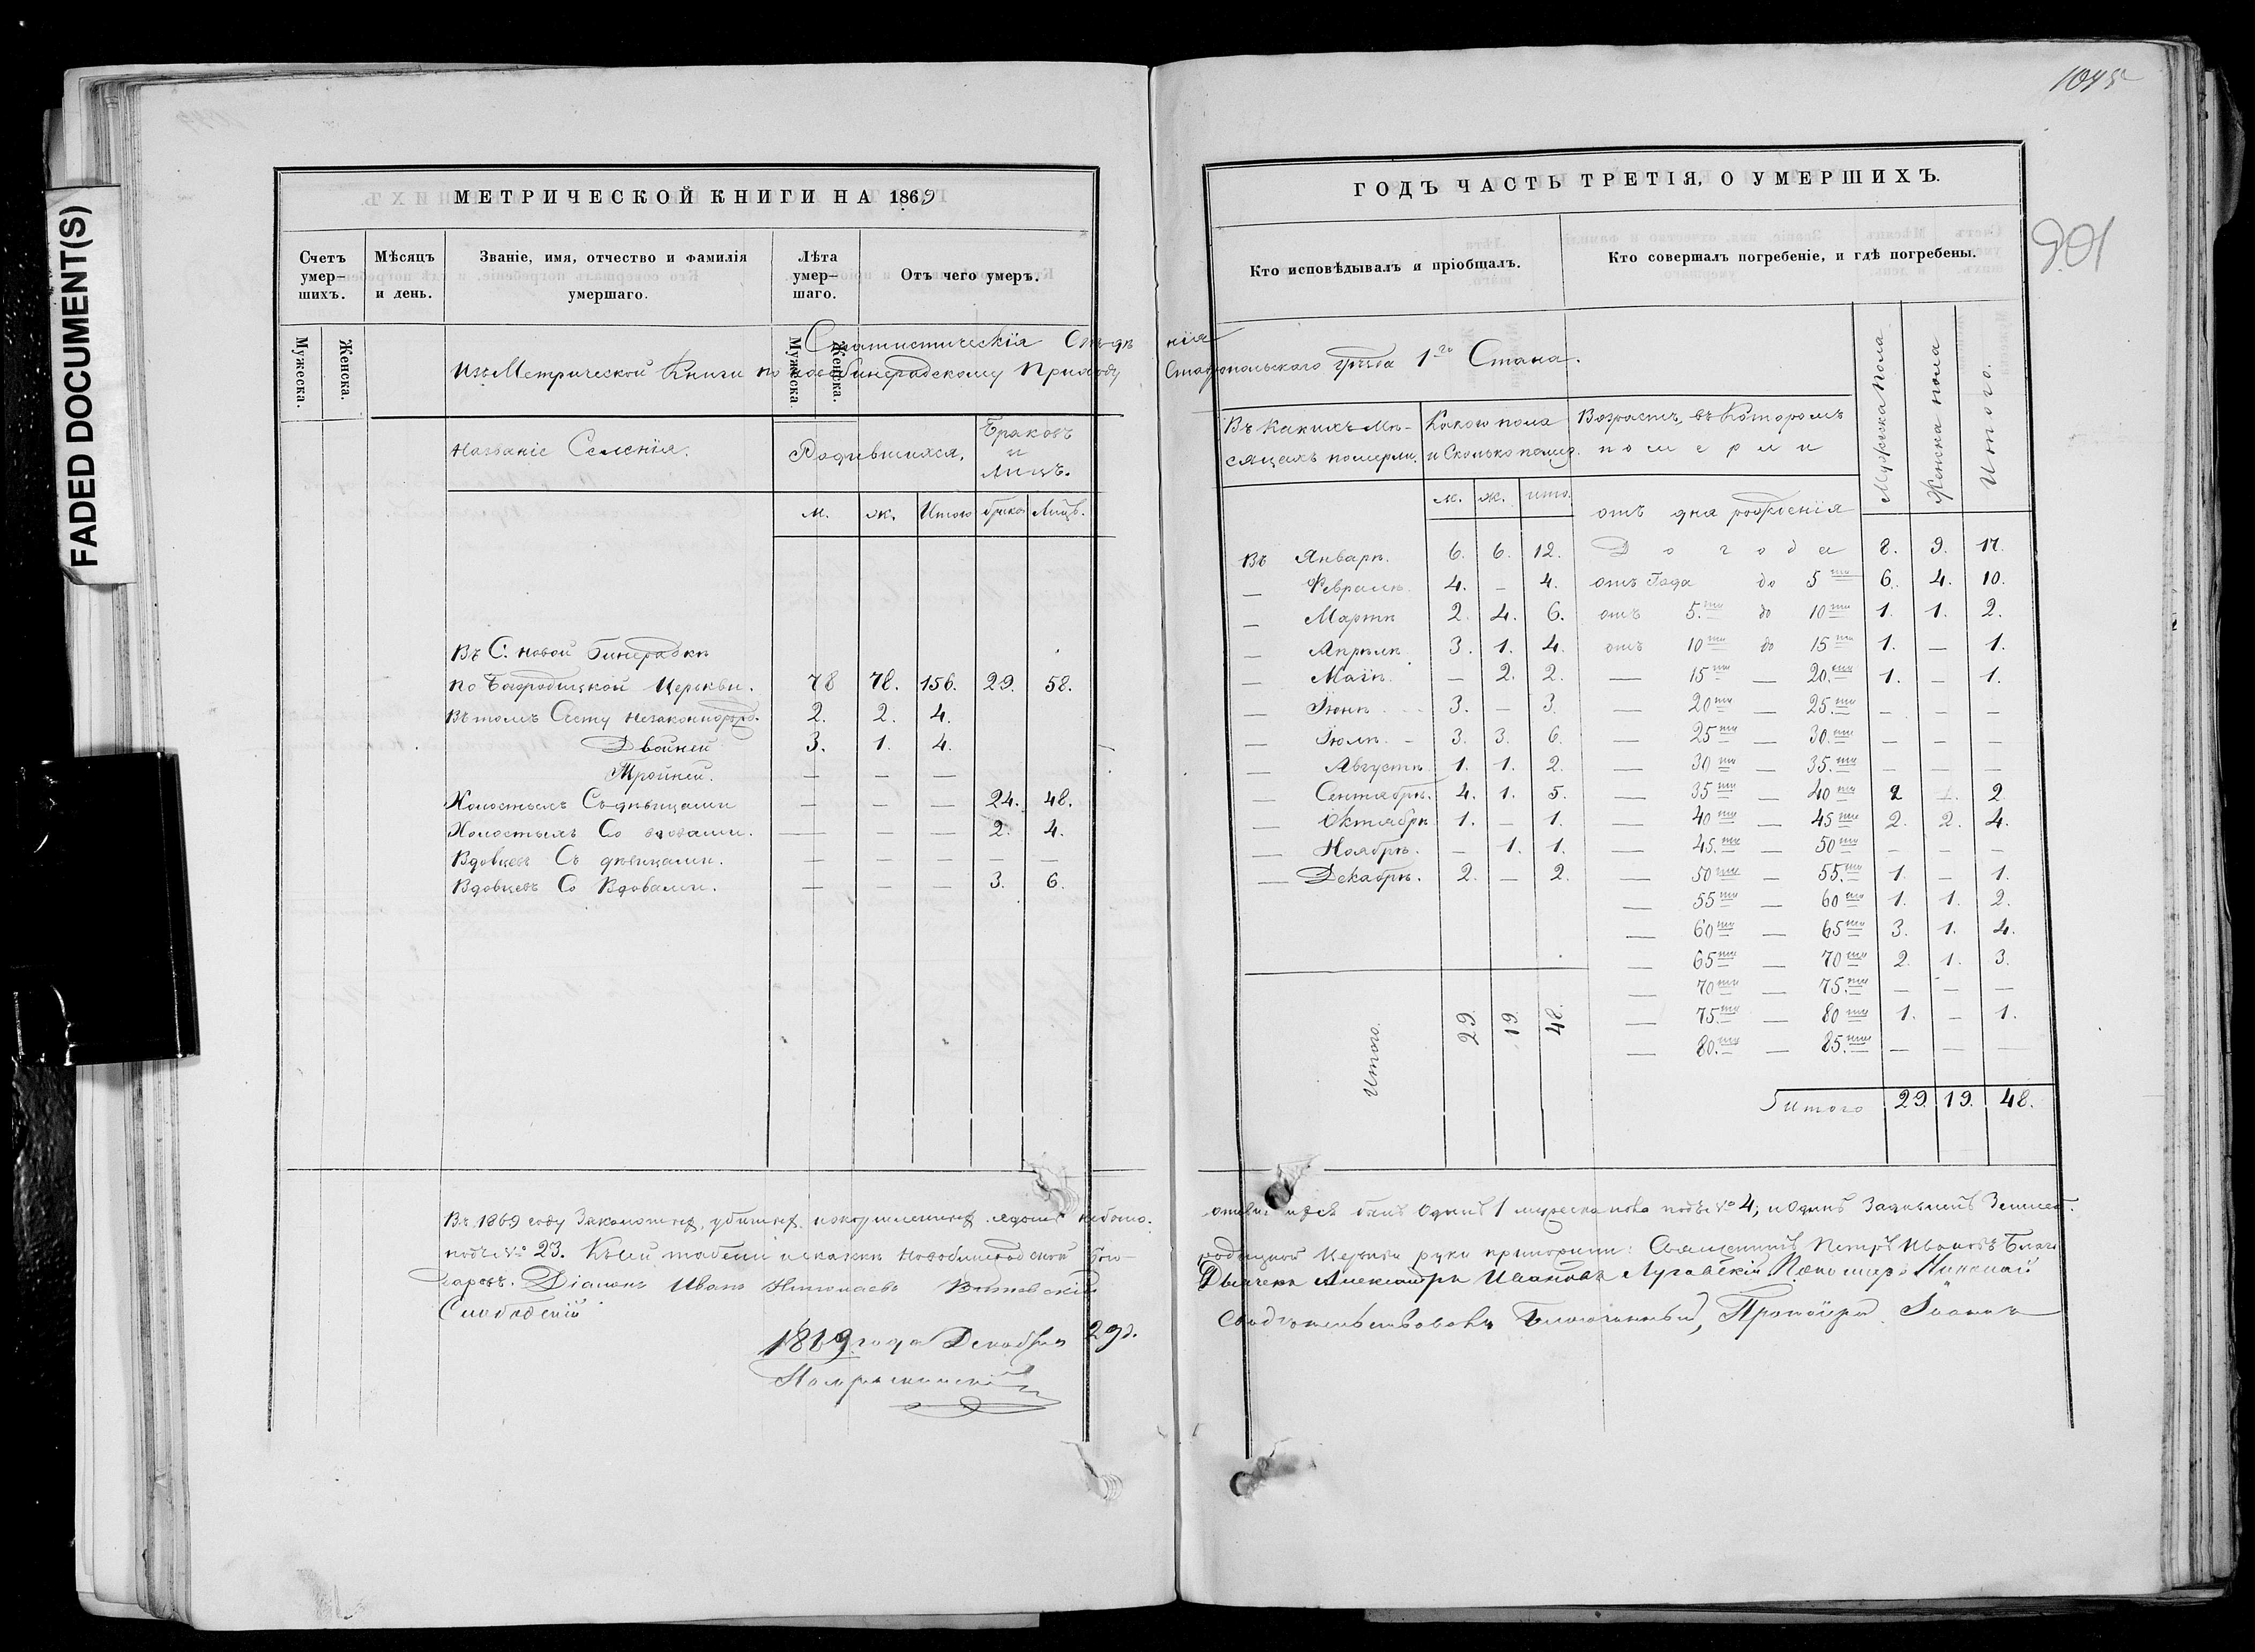 1045
FADED DOCUMENT(S)
МЕТРИЧЕСКОЙ КНИГИ НА 1869
Счетъ умер-шихъ.
Мѣсяцъ и день.
Званіе, имя, отчество и фамилія умершаго.
Лѣта умер-шаго.
Отъ чего умеръ.
Мужеска.
Женска.
Мужеска.
Женска.
ГОДЪ ЧАСТЬ ТРЕТІЯ, О УМЕРШИХЪ.
901
Кто исповѣдывалъ и пріобщалъ.
Кто совершалъ погребеніе, и гдѣ погребены.
Статистическія Свѣдѣнія
изъ Метрической Книги по новобинарадскому Приходу Ставропольскаго уѣзда 1го Стана.
Названіе Селенія.
Родившихся,
Браковъ и лицъ.
м. ж. Итого браков Лицъ.
Въ С. Новой Бинарадкѣ
по Богородицкой Церкви. 78 78. 156. 29. 58.
Въ томъ Счету незаконнорожд. 2. 2. 4.
Двойней 3. 1. 4.
Тройней. — — —
Холостыхъ Съ дѣвицами — — — 24. 48.
Холостыхъ Со вдовами. — — — 2. 4.
Вдовцевъ Съ дѣвицами. — — — — —
Вдовцевъ Со Вдовами. — — — 3. 6.
Въ какихъ мѣ-сяцахъ померли.
Какого пола и Сколько
м. ж. ито.
Въ Январѣ. 6. 6. 12.
— Февралѣ. 4. — 4.
— Мартѣ 2. 4. 6.
— Апрѣлѣ 3. 1. 4.
— Маіѣ. — 2. 2.
— Іюнѣ. 3. — 3.
— Іюлѣ. 3. 3. 6.
— Августѣ 1. 1. 2.
— Сентябрѣ. 4. 1. 5.
— Октябрѣ 1. — 1.
— Ноябрѣ. — 1. 1.
— Декабрѣ. 2. — 2.
Итого. 29. 19. 48.
Возрастъ, въ которомъ померли
Мужеска Пола
Женска пола
Итого.
отъ дня рожденія
До года 8. 9. 17.
отъ Года до 5ти 6. 4. 10.
отъ 5.ти до 10ти 1. 1. 2.
отъ 10ти до 15ти 1. — 1.
— 15ти — 20.ти 1. — 1.
— 20ти — 25.ти — — —
— 25ти — 30.ти — — —
— 30ти — 35.ти — — —
— 35ти — 40ти 2 2
— 40ти — 45ти 2. 2. 4.
— 45.ти — 50ти — — —
— 50ти — 55.ти 1. — 1.
— 55ти — 60ти 1. 1. 2.
— 60ти — 65ти 3. 1. 4.
— 65ти — 70ти 2. 1. 3.
— 70ти — 75.ти — — —
— 75.ти — 80ти 1. — 1.
— 80.ти — 85.ти — — —
итого 29. 19. 48.
Въ 1869 году убитыхъ, ядомъ небыло. былъ Одинъ 1 мужеска пола подъ № 4, и Одинъ
подъ № 23. Къ Бого-родицкой Церкви руки приложили: Священникъ Петръ Ивановъ
Діаконъ Иванъ Николаевъ Дьячекъ Александръ Ивановъ Пономарь Николай
Слободскій
Благочинный, Протоіерей Іоаннъ
1869 года Декабря 29 д.